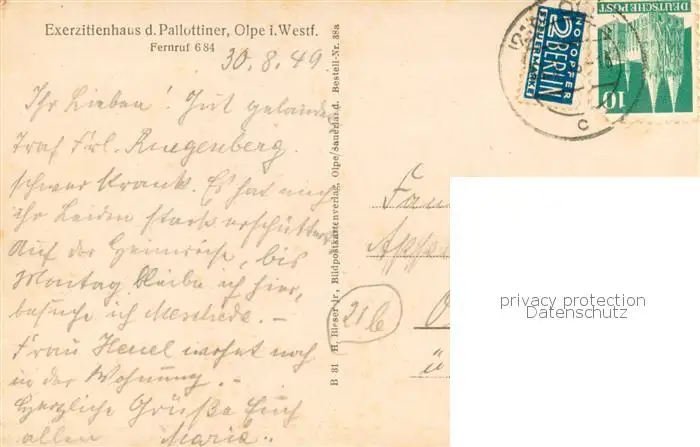 Exerzitienhaus d. Pallottiner, Olpe i. Westf.
Fernruf 684
30.8.49
Ihr Lieben! Gut gelandet
traf Frl. Ruegenberg
schwer krank. Es hat mich
ihr Leiden stark erschüttert
Auf der Heimreise, bis
Montag bleibe ich hier,
besuche ich Meschede. –
Frau Heuel wohnt noch
in der Wohnung. –
Herzliche Grüße Euch
allen Maria.
B 81 H. Bieser jr., Bildpostkartenverlag, Olpe/Sauerland. Bestell-Nr. 38a
NOTOPFER
2 BERLIN
STEUERMARKE
DEUTSCHE POST
10
c
21b
privacy protection
Datenschutz